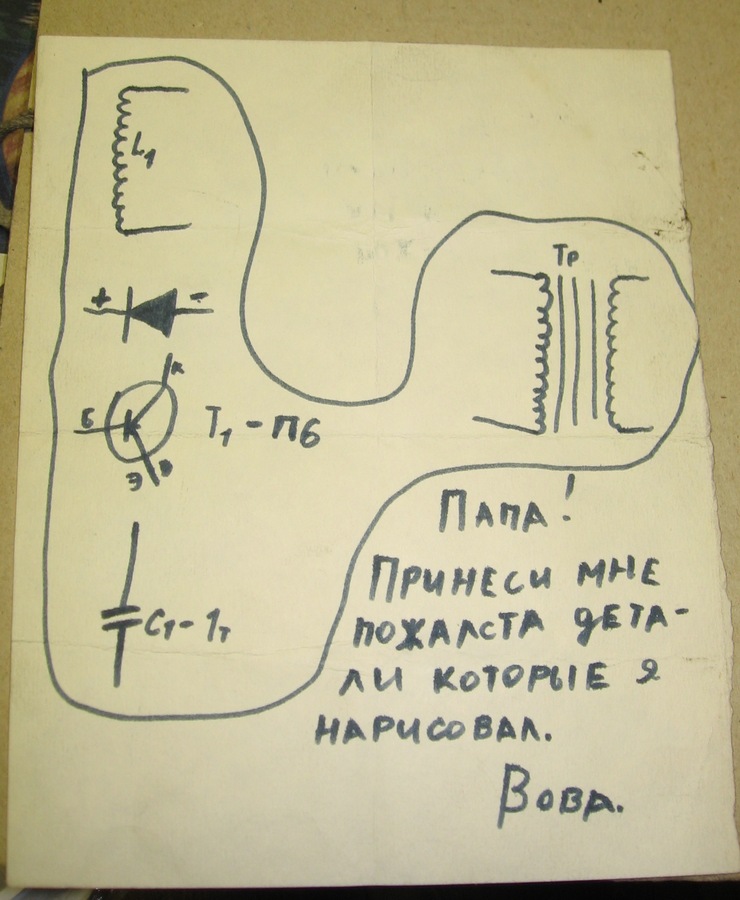 L1
+ -
К
Б
Т1 - П6
Э
С1 - 1т
Тр
ПАПА!
ПРИНЕСИ МНЕ
ПОЖАЛСТА ДЕТА-
ЛИ КОТОРЫЕ Я
НАРИСОВАЛ.
ВОВА.